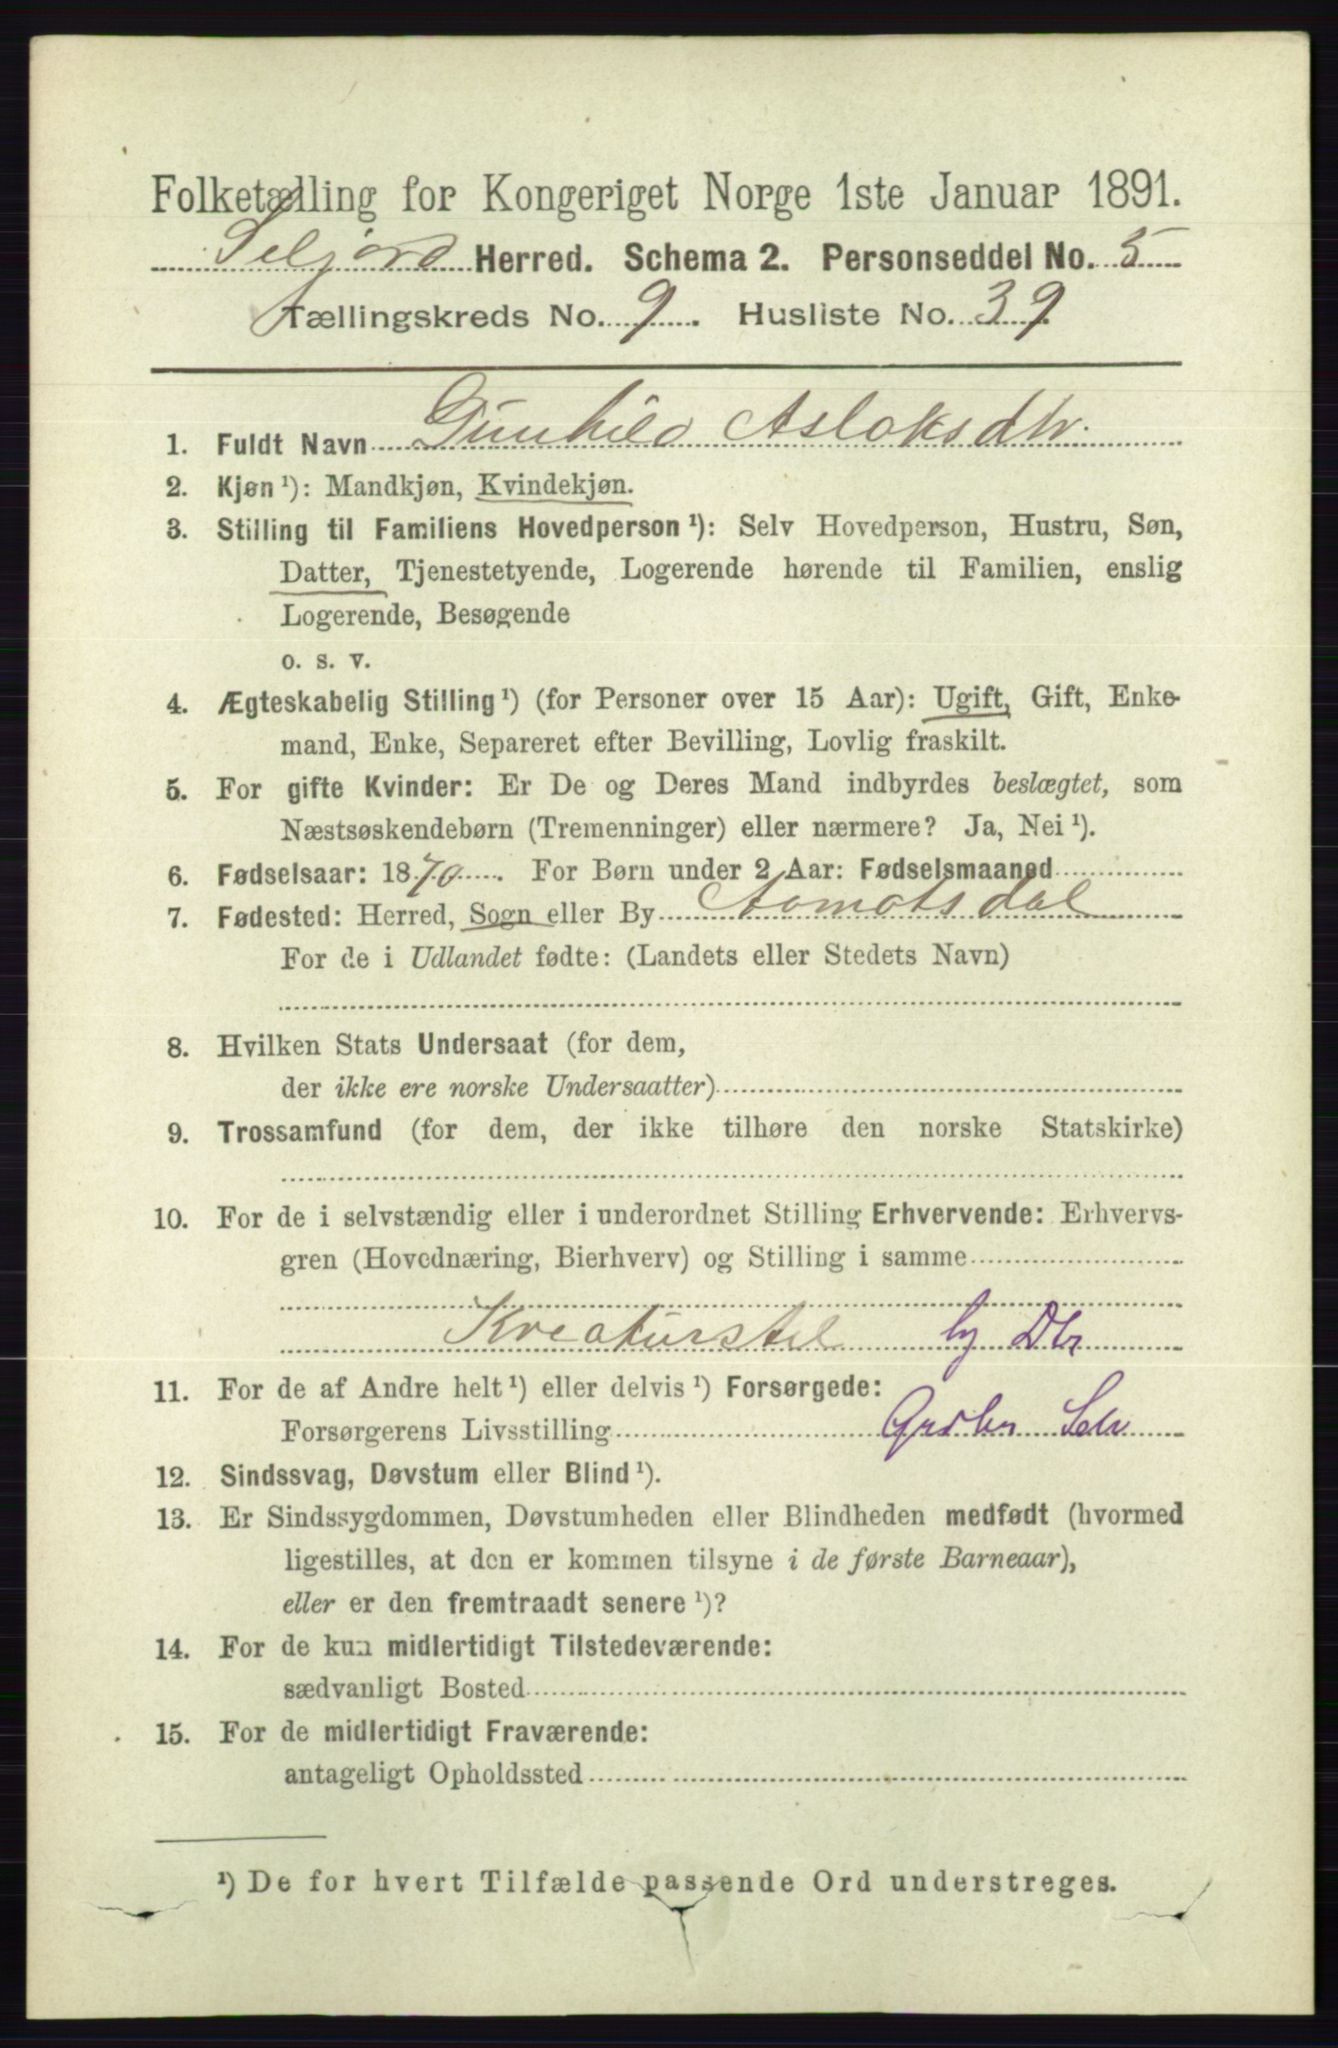 Folketælling for Kongeriget Norge 1ste Januar 1891.
Seljord Herred. Schema 2. Personseddel No. 5
Tællingskreds No. 9. Husliste No. 39
1. Fuldt Navn Gunhild Aslaksdtr.
2. Kjøn ¹): Mandkjøn, Kvindekjøn.
3. Stilling til Familiens Hovedperson ¹): Selv Hovedperson, Hustru, Søn,
Datter, Tjenestetyende, Logerende hørende til Familien, enslig
Logerende, Besøgende
o. s. v.
4. Ægteskabelig Stilling ¹) (for Personer over 15 Aar): Ugift, Gift, Enke-
mand, Enke, Separeret efter Bevilling, Lovlig fraskilt.
5. For gifte Kvinder: Er De og Deres Mand indbyrdes beslægtet, som
Næstsøskendebørn (Tremenninger) eller nærmere? Ja, Nei ¹).
6. Fødselsaar: 1870. For Børn under 2 Aar: Fødselsmaaned
7. Fødested: Herred, Sogn eller By Aamotsdal
For de i Udlandet fødte: (Landets eller Stedets Navn)
8. Hvilken Stats Undersaat (for dem,
der ikke ere norske Undersaatter)
9. Trossamfund (for dem, der ikke tilhøre den norske Statskirke)
10. For de i selvstændig eller i underordnet Stilling Erhvervende: Erhvervs-
gren (Hovednæring, Bierhverv) og Stilling i samme
Kreaturstel hj Dtr
11. For de af Andre helt ¹) eller delvis ¹) Forsørgede:
Forsørgerens Livsstilling Grdbr Selv
12. Sindssvag, Døvstum eller Blind ¹).
13. Er Sindssygdommen, Døvstumheden eller Blindheden medfødt (hvormed
ligestilles, at den er kommen tilsyne i de første Barneaar),
eller er den fremtraadt senere ¹)?
14. For de kun midlertidigt Tilstedeværende:
sædvanligt Bosted
15. For de midlertidigt Fraværende:
antageligt Opholdssted
¹) De for hvert Tilfælde passende Ord understreges.